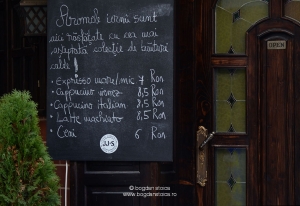 Aromele iernii sunt
aici răsfățate cu cea mai
așteptată colecție de băuturi
calde!
• Espresso mare/mic 7 Ron
• Cappucino vienez 8,5 Ron
• Cappucino italian 8,5 Ron
• Latte machiato 8,5 Ron
• Ceai 6 Ron
© bogdanstoros
www.bogdanstoros.ro